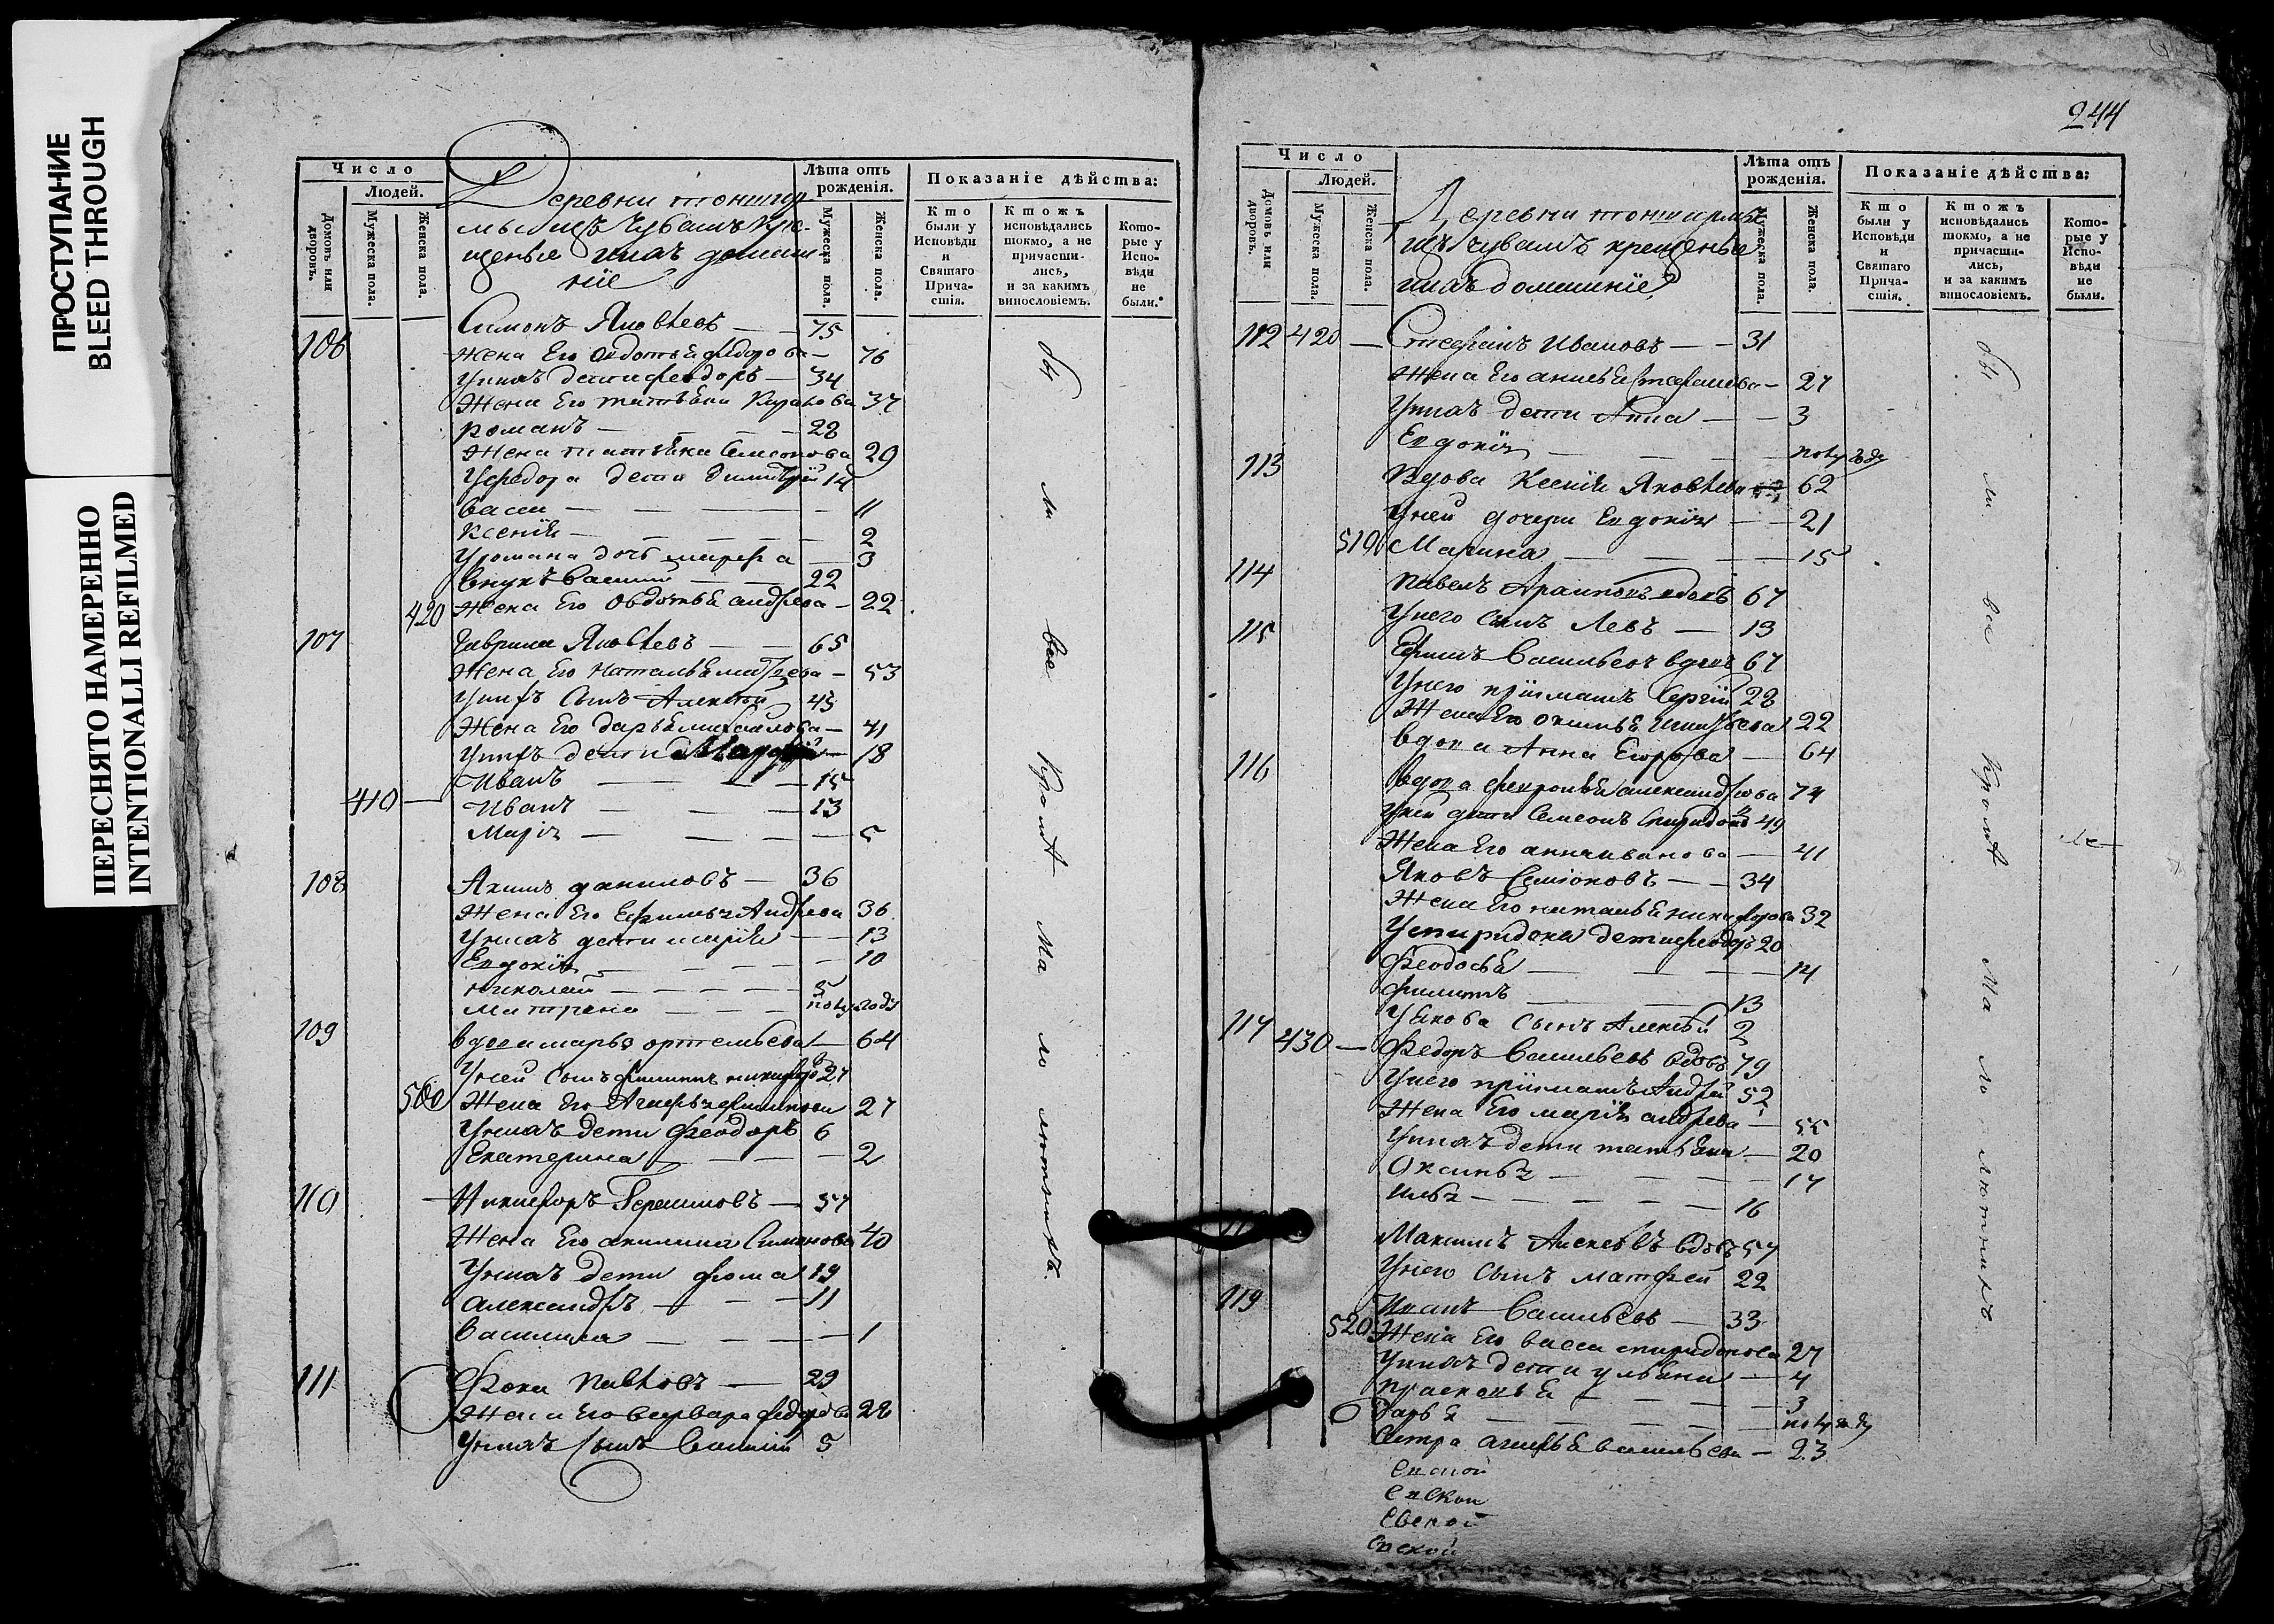 ПРОСТУПАНИЕ
BLEED THROUGH
ПЕРЕСНЯТО НАМЕРЕННО
INTENTIONALLI REFILMED
Число
Людей.
Домовъ или дворовъ.
Мужеска пола.
Женска пола.
Деревни
чувашъ кре-
щеные ихъ домашн
ніе
Лѣта отъ рожденія.
Мужеска пола.
Женска пола.
Показаніе дѣйства:
Кто были у Исповѣди и Святаго Прича-стія.
Ктожъ исповѣдались токмо, а не причасти-лись, и за какимъ винословіемъ.
Кото-рые у Испо-вѣди не были.
Симонъ Яковлевъ — 75
106 жена Его Овдотья федорова — 76
У нихъ дети феодоръ — 34
Жена Его татьяна 37
романъ — 28
Жена татьяна Семенова 29
У федора дети димитрій 14
васса — 11
Ксенія — 2
У романа дочь марфа — 3
внукъ Василій — 22
420 Жена Его Овдотья андреева — 22
107 Гаврила Яковлевъ — 65
Жена Его Наталья — 53
У нихъ сынъ Алексей 45
Жена Его дарья михаилова — 41
У нихъ дети — 18
Иванъ — 15
410 — Иванъ — 13
Марія — 5
108 Акимъ даниловъ — 36
Жена Его Андреева 36
У нихъ дети марія — 13
Евдокія — 10
николай — 5
матрена — полугоду
109 вдова марья — 64
У ней сынъ филипъ 27
500 Жена Его Агафья филипова 27
У нихъ дети Феодоръ 6
Екатерина — 2
110 Никифоръ Герасимовъ — 37
Жена Его акилина Симонова 40
У нихъ дети фома 19
александръ — 11
василиса — 1
111 Фока Павловъ — 29
Жена Его варвара федорова 28
У нихъ сынъ Василій 5
бы
ли
все
кромѣ
ма
ло
лютнихъ.
244
Число
Людей.
Домовъ или дворовъ.
Мужеска пола.
Женска пола.
Деревни
чувашъ крещеные
ихъ домашніе
Лѣта отъ рожденія.
Мужеска пола.
Женска пола.
Показаніе дѣйства:
Кто были у Исповѣди и Святаго Прича-стія.
Ктожъ исповѣдались токмо, а не причасти-лись, и за какимъ винословіемъ.
Кото-рые у Испо-вѣди не были.
112 420 — Стефанъ Ивановъ — 31
Жена Его анисья Стефанова — 27
У нихъ дети Анна — 3
Евдокія — полугоду
113 Вдова Ксенія Яковлева 62
У ней дочери Евдокія — 21
510 Марина — 15
114 Павелъ вдовъ 67
У него сынъ Левъ — 19
115 Ефимъ Васильевъ вдовъ 67
У него пріимышъ Сергій 28
Жена Его 22
вдова Анна Егорова — 64
116 вдова февронья александрова 74
У ней дети Семенъ Спиридонъ 49
Жена Его анна иванова — 41
Яковъ Семіоновъ — 34
Жена Его наталья никифорова 32
У спиридона дети феодоръ 20
Феодосья — 14
филипъ — 13
У Якова сынъ Алексей 2
117 430 — Федоръ Васильевъ вдовъ 79
У него пріимышъ Андрей 52
Жена Его марія андреева — 55
У нихъ дети татьяна — 20
Оксинья — 17
илья — 16
Максимъ Алексеевъ вдовъ 57
У него сынъ матфей 22
119 Иванъ Васильевъ — 33
520 Жена Его васса спиридонова 27
У нихъ дети ульяна — 4
прасковья — 3
дарья — полугоду
Сестра агафья васильева — 23
бы
ли
все
кромѣ
ма
ло
лютнихъ